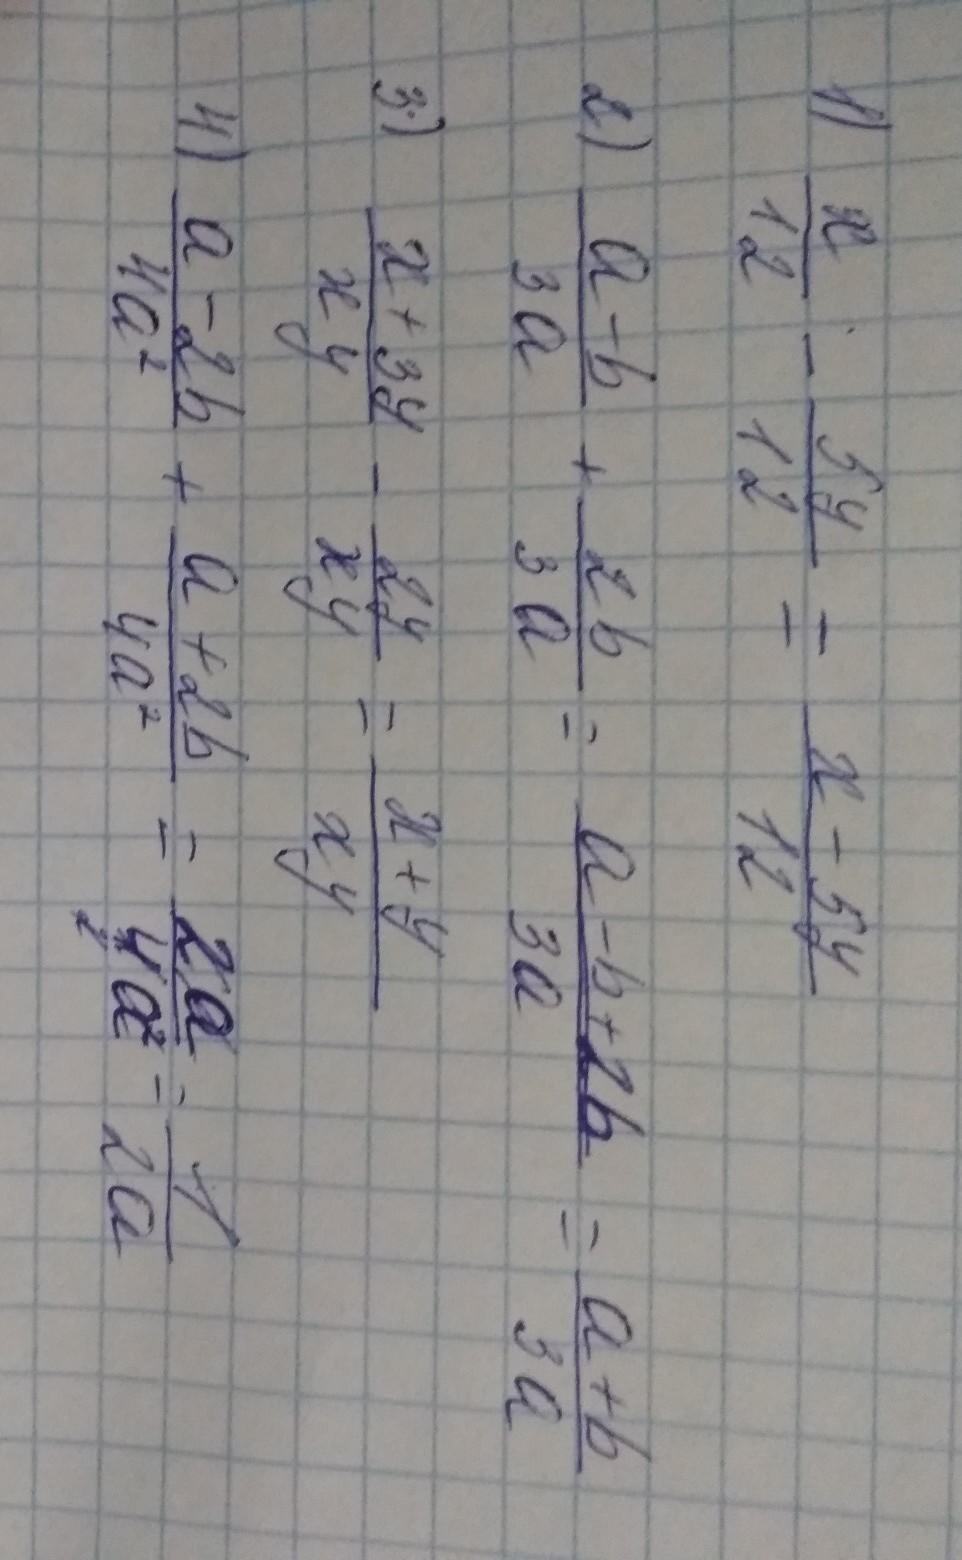 1) x/12 - 5y/12 = (x - 5y)/12
2) (a - b)/3a + 2b/3a = (a - b + 2b)/3a = (a + b)/3a
3) (x + 3y)/xy - 2y/xy = (x + y)/xy
4) (a - 2b)/4a² + (a + 2b)/4a² = 2a/4a² = 1/2a